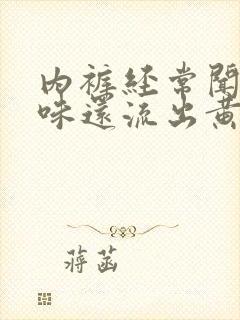 内裤经常闻
味還流出黄
蒋菡